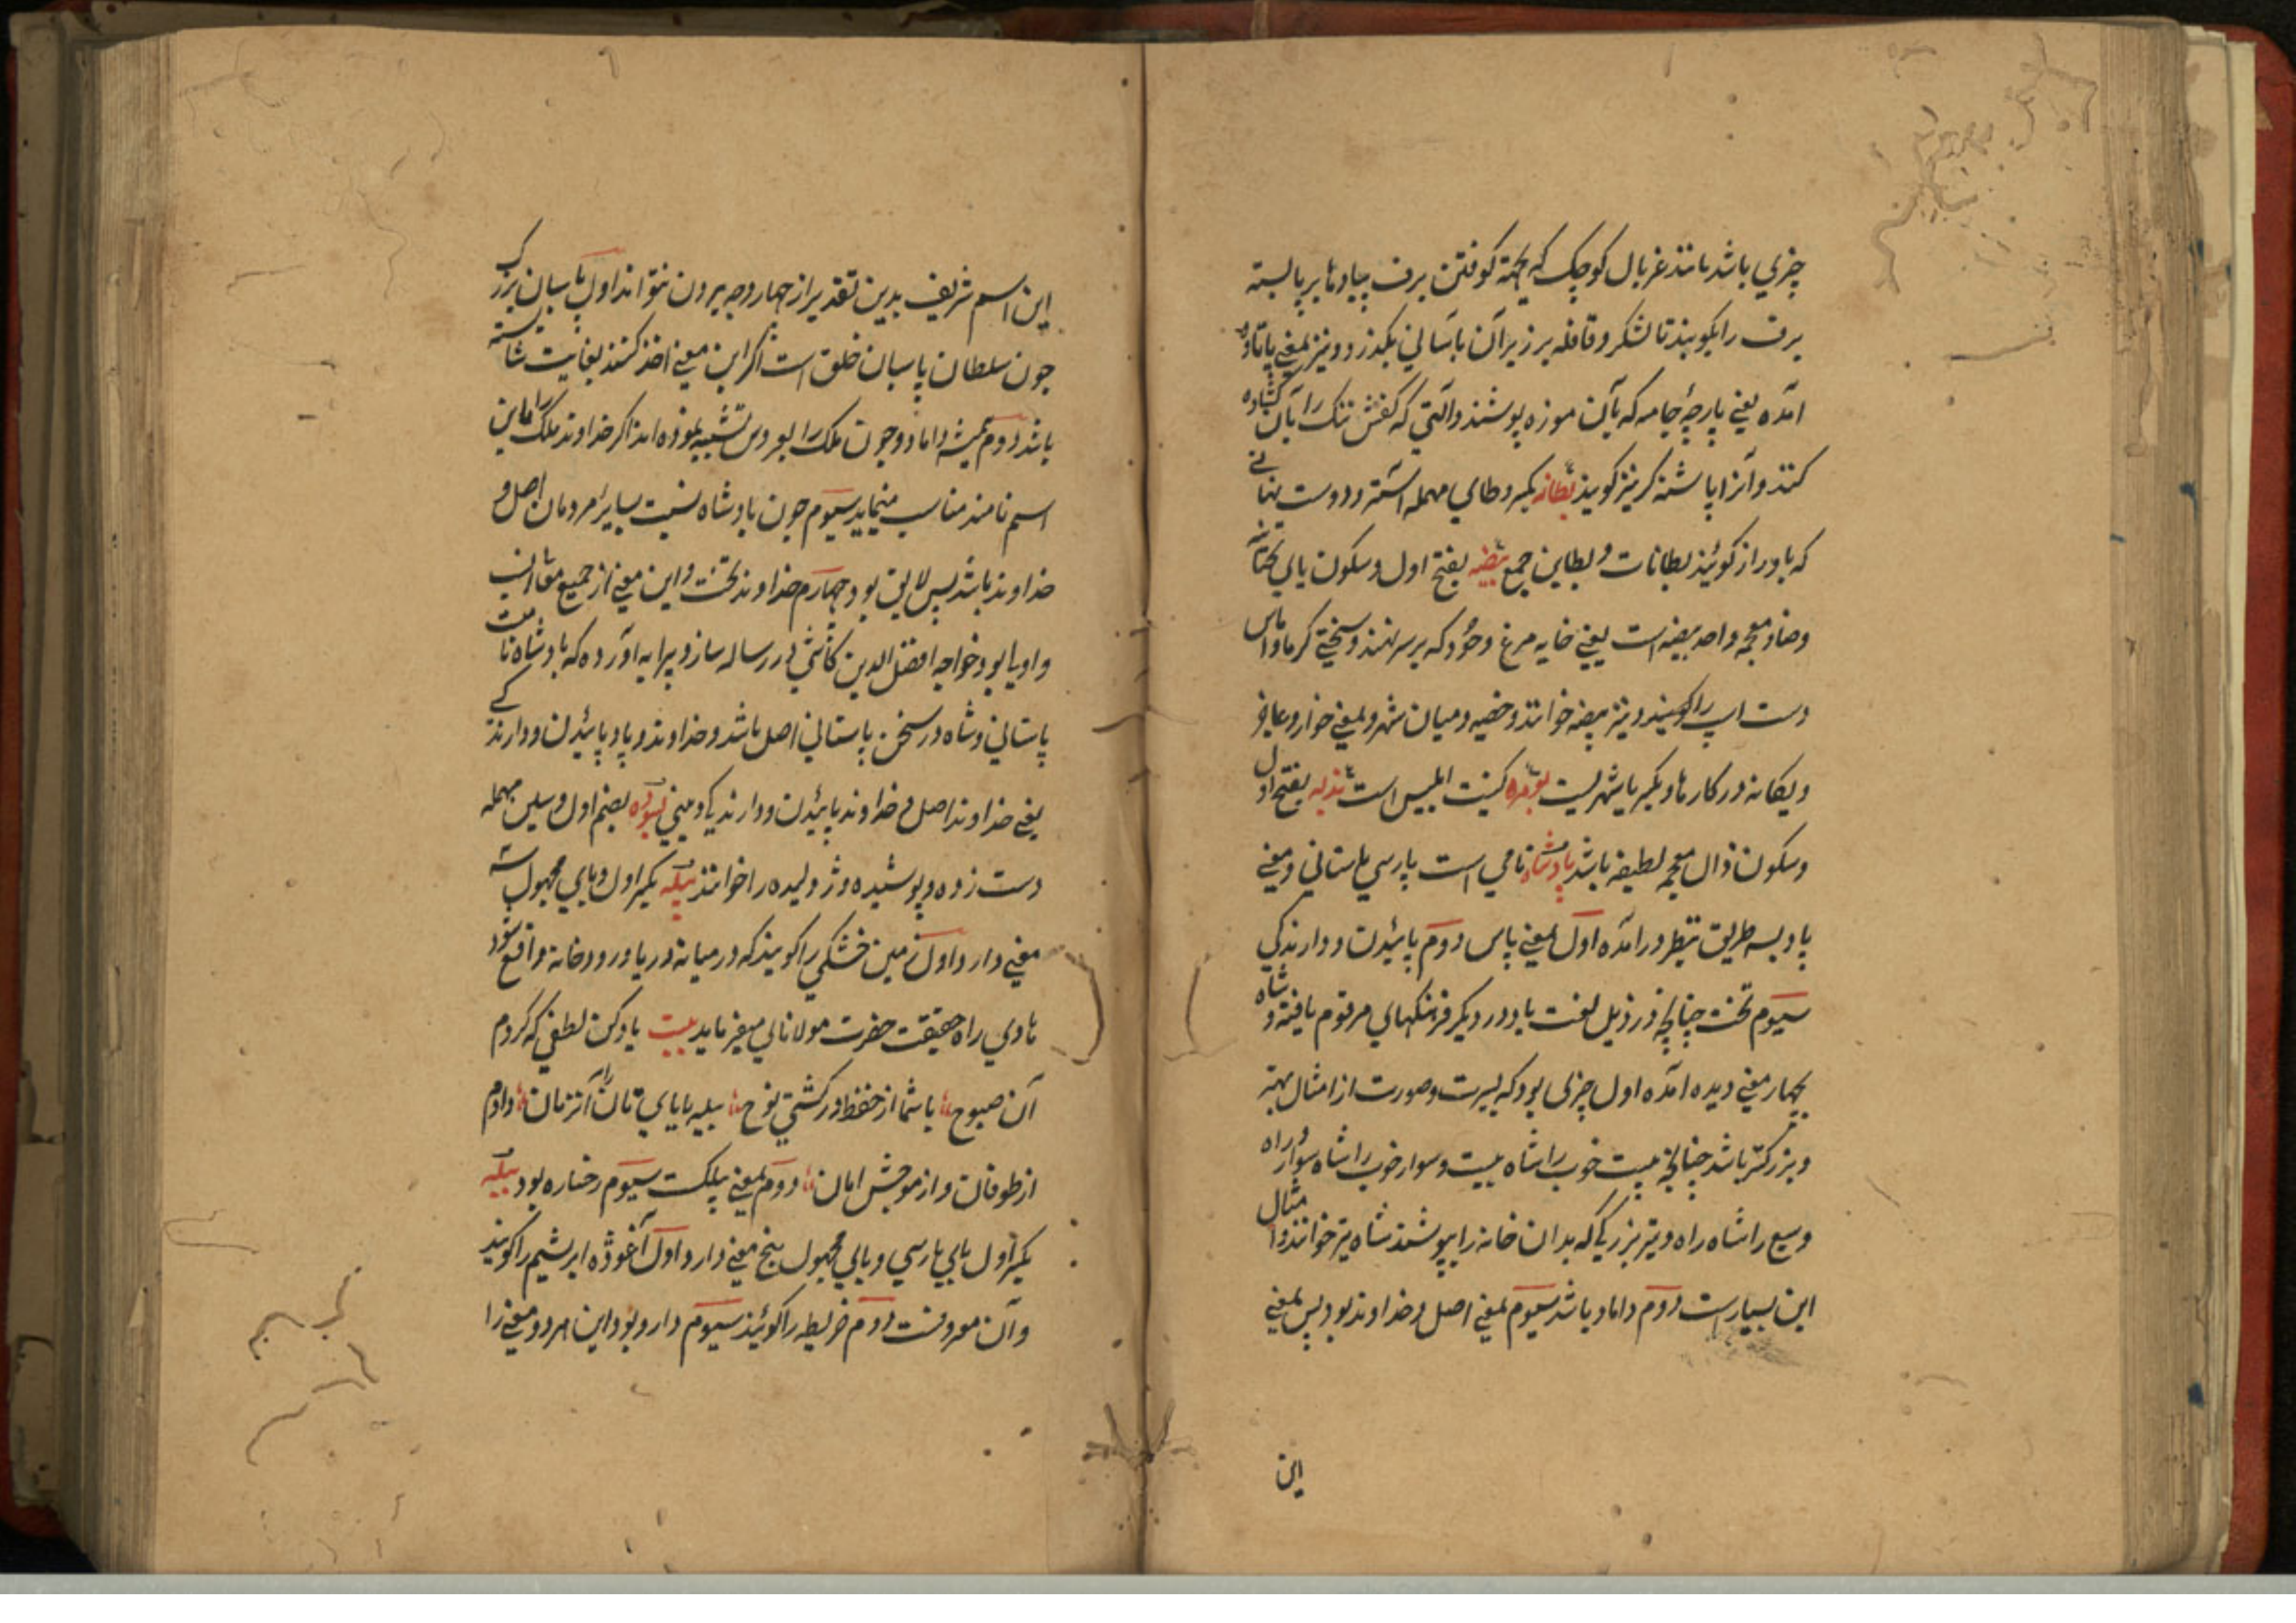 چیزی باشد مانند غربال کوچک که بجهة کوفتن برف پیادها بر پا بسته
برف را بکوبند تا لشکر و قافله بر زیر آن بآسانی بکذرد و نیز بمعنی پاتابه
آمده یعنی پارچۀ جامه که بآن موزه پوشند و آلتی که کفش تنک را بآن کشاده
کنند و آنرا پاشنه کریز کویند بطانه بکسر و طای مهمله آستر و دوست نهانی
که باو راز کویند بطانات و بطاین جمع بیضه بفتح اول و سکون یای تحتانیه
و ضاد معجمه واحد بیضه است یعنی خایه مرغ و خود که بر سر نهند و سختی کرما و اماس
دست اسپ را کویند و نیز بیضه خوانند و خصیه و میان شهر و بمعنی خوار و عاجز
و یکانه در کارها و بکسر با شهریست بومره کنیت ابلیس است بذله بفتح اول
و سکون ذال معجمه لطیفه باشد پادشاه نامی است پارسی باستانی و معنی
پاد بسه طریق بنظر درآمده اول بمعنی پاس دوم پائیدن و دارندکی
سیوم تخت چنانچه در ذیل لغت پاد در دیکر فرهنکهای مرقوم یافته و شاه
بچهار معنی دیده آمده اول چیزی بود که بسیرت و صورت از امثال بهتر
و بزرکتر باشد چنانچه بیت خوب را شاه بیت و سوار خوب را شاه سوار و راه
وسیع را شاه راه و تیر بزرکی که بدان خانه را بپوشند شاه تیر خوانند و امثال
این بسیارست دوم داماد باشد سیوم بمعنی اصل و خداوند بود پس بمعنی
این
این اسم شریف بدین تقدیر از چهار وجه بیرون نتواند اول پاسبان بزرک
چون سلطان پاسبان خلق است اکر این معنی اخذ کنند بغایت شایسته
باشد دوم همیشه داماد و چون ملک را بعروس تشبیه نموده اند اکر خداوند ملک را باین
اسم نامند مناسب مینماید سیوم چون پادشاه نسبت بسایر مردمان اصل و
خداوند باشد پس لایق بود چهارم خداوند تخت و این معنی از جمیع معانی انسب
و اولی بود خواجه افضل الدین کاشی در رساله ساز و پیرایه آورده که پادشاه نامست
پاستانی و شاه در سخن پاستانی اصل باشد و خداوند و پاد پائیدن و دارندکی
یعنی خداوند اصل و خداوند پائیدن و دارندکی بضم اول و سین مهمله
دست زده و پوسیده و ژولیده را خوانند بیله بکسر اول و یای مجهول سه
معنی دارد اول زمین خشکی را کویند که در میانه دریا و رودخانه واقع شود
هادی راه حقیقت حضرت مولانا میفرماید بیت یاد کن لطفی که کردم
آن صبوح با شما از حفظ در کشتی نوح بیله بابای تان را آنزمان دادم
از طوفان و از موجش امان دوم بمعنی پلک سیوم رخساره بود پیله
بکسر اول بای پارسی و یای مجهول پنج معنی دارد اول آغوزه ابریشم را کویند
و آن معروفست دوم خریطه را کویند سیوم دارو بود و این هر دو معنی را